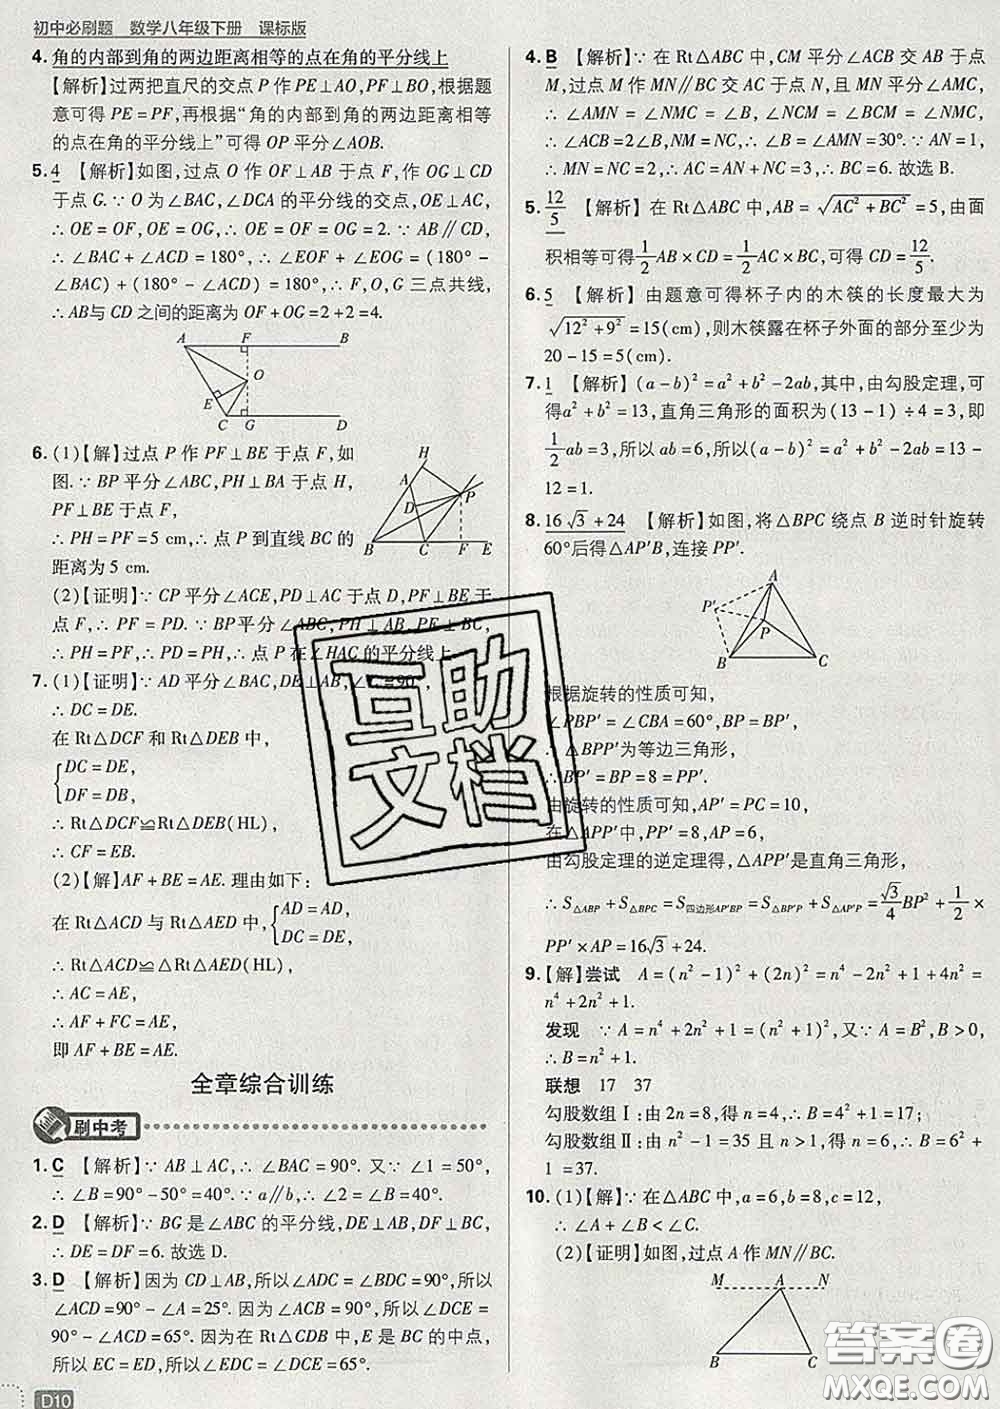 初中必刷题 数学八年级下册 课标版
4. 角的内部到角的两边距离相等的点在角的平分线上
【解析】过两把直尺的交点 P 作 PE⊥AO,PF⊥BO,根据题
意可得 PE = PF,再根据“角的内部到角的两边距离相等
的点在角的平分线上”可得 OP 平分∠AOB.
5. 4 【解析】如图,过点 O 作 OF⊥AB 于点 F,作 OG⊥CD
于点 G.∵ O 为∠BAC,∠DCA 的平分线的交点,OE⊥AC,
∴ OE = OF,OE = OG,∴ OF = OG = 2. ∵ AB∥CD,
∴ ∠BAC + ∠ACD = 180°,∴ ∠EOF + ∠EOG = (180° −
∠BAC) + (180° − ∠ACD) = 180°,∴ F,O,G 三点共线,
∴ AB与 CD 之间的距离为 OF + OG = 2 + 2 = 4.
A F B
O
E
C G D
6. (1)【解】过点 P 作 PF⊥BE 于点 F,如
图.∵ BP 平分∠ABC,PH⊥BA 于点 H,
PF⊥BE 于点 F,
∴ PH = PF = 5 cm,∴ 点 P 到直线 BC 的
距离为 5 cm.
H
A
D P
B C F E
(2)【证明】∵ CP 平分∠ACE,PD⊥AC 于点 D,PF⊥BE 于
点 F,∴ PF = PD. ∵ BP 平分∠ABC,PH⊥AB,PF⊥BE,
∴ PH = PF,∴ PH = PD,∴ 点 P 在∠HAC 的平分线上.
7. (1)【证明】∵ AD 平分∠BAC,DE⊥AB,∠C = 90°,
∴ DC = DE.
在 Rt△DCF 和 Rt△DEB 中,
{DC = DE,
DF = DB,
∴ Rt△DCF≌Rt△DEB(HL),
∴ CF = EB.
(2)【解】AF + BE = AE. 理由如下:
在 Rt△ACD 与 Rt△AED 中,{AD = AD,
DC = DE,
∴ Rt△ACD≌△Rt△AED(HL),
∴ AC = AE,
∴ AF + FC = AE,
即 AF + BE = AE.
全章综合训练
刷中考
1. C 【解析】∵ AB⊥AC,∴ ∠BAC = 90°. 又∵ ∠1 = 50°,
∴ ∠B = 90° − 50° = 40°. ∵ a∥b,∴ ∠2 = ∠B = 40°.
2. D 【解析】∵ BG 是∠ABC 的平分线,DE⊥AB,DF⊥BC,
∴ DE = DF = 6. 故选 D.
3. D 【解析】因为 CD⊥AB,所以∠ADC = ∠BDC = 90°,所以
∠ACD = 90° − ∠A = 25°. 因为∠ACB = 90°,所以∠DCE =
90° − ∠ACD = 65°. 因为在 Rt△CDB 中,E 是 BC 的中点,
所以 EC = ED,所以∠EDC = ∠DCE = 65°.
D10
4. B 【解析】∵ 在 Rt△ABC 中,CM 平分∠ACB 交 AB 于点
M,过点 M 作 MN∥BC 交 AC 于点 N,且 MN 平分∠AMC,
∴ ∠AMN = ∠NMC = ∠B,∠NCM = ∠BCM = ∠NMC,
∴ ∠ACB = 2∠B,NM = NC,∴ ∠B = ∠AMN = 30°. ∵ AN = 1,
∴ MN = NC = 2,∴ AC = AN + NC = 3,∴ BC = 6. 故选 B.
5. 12/5 【解析】在 Rt△ABC 中,AB = √(AC² + BC²) = 5,由面
积相等可得 1/2 AB × CD = 1/2 AC × BC,可得 CD = 12/5.
6. 5 【解析】由题意可得杯子内的木筷的长度最大为
√(12² + 9²) = 15(cm),则木筷露在杯子外面的部分至少为
20 − 15 = 5(cm).
7. 1 【解析】(a − b)² = a² + b² − 2ab,其中,由勾股定理,可
得a² + b² = 13,直角三角形的面积为(13 − 1) ÷ 4 = 3,即
1/2 ab = 3,所以 ab = 6,所以(a − b)² = a² + b² − 2ab = 13 −
12 = 1.
8. 16√3 + 24 【解析】如图,将△BPC 绕点 B 逆时针旋转
60°后得△AP′B,连接 PP′.
A
P′
P
B C
根据旋转的性质可知,
∠PBP′ = ∠CBA = 60°,BP = BP′,
∴ △BPP′为等边三角形,
∴ BP′ = BP = 8 = PP′.
由旋转的性质可知,AP′ = PC = 10,
在△APP′中,PP′ = 8,AP = 6,
由勾股定理的逆定理得,△APP′是直角三角形,
∴ S△ABP + S△BPC = S四边形AP′BP = S△BP′P + S△AP′P = √3/4 BP² + 1/2 ×
PP′ × AP = 16√3 + 24.
9. 【解】尝试 A = (n² − 1)² + (2n)² = n⁴ − 2n² + 1 + 4n² =
n⁴ + 2n² + 1.
发现 ∵ A = n⁴ + 2n² + 1 = (n² + 1)²,又∵ A = B²,B > 0,
∴ B = n² + 1.
联想 17 37
勾股数组Ⅰ:由 2n = 8,得 n = 4,∴ B = 4² + 1 = 17;
勾股数组Ⅱ:由 n² − 1 = 35 且 n > 1,得 n = 6,∴ B = 6² +
1 = 37.
10. (1)【解】∵ 在△ABC 中,a = 6,b = 8,c = 12,
∴ ∠A + ∠B < ∠C.
(2)【证明】如图,过点 A 作 MN∥BC.
M A N
B C
互助
文档
答案圈
MXQE.COM